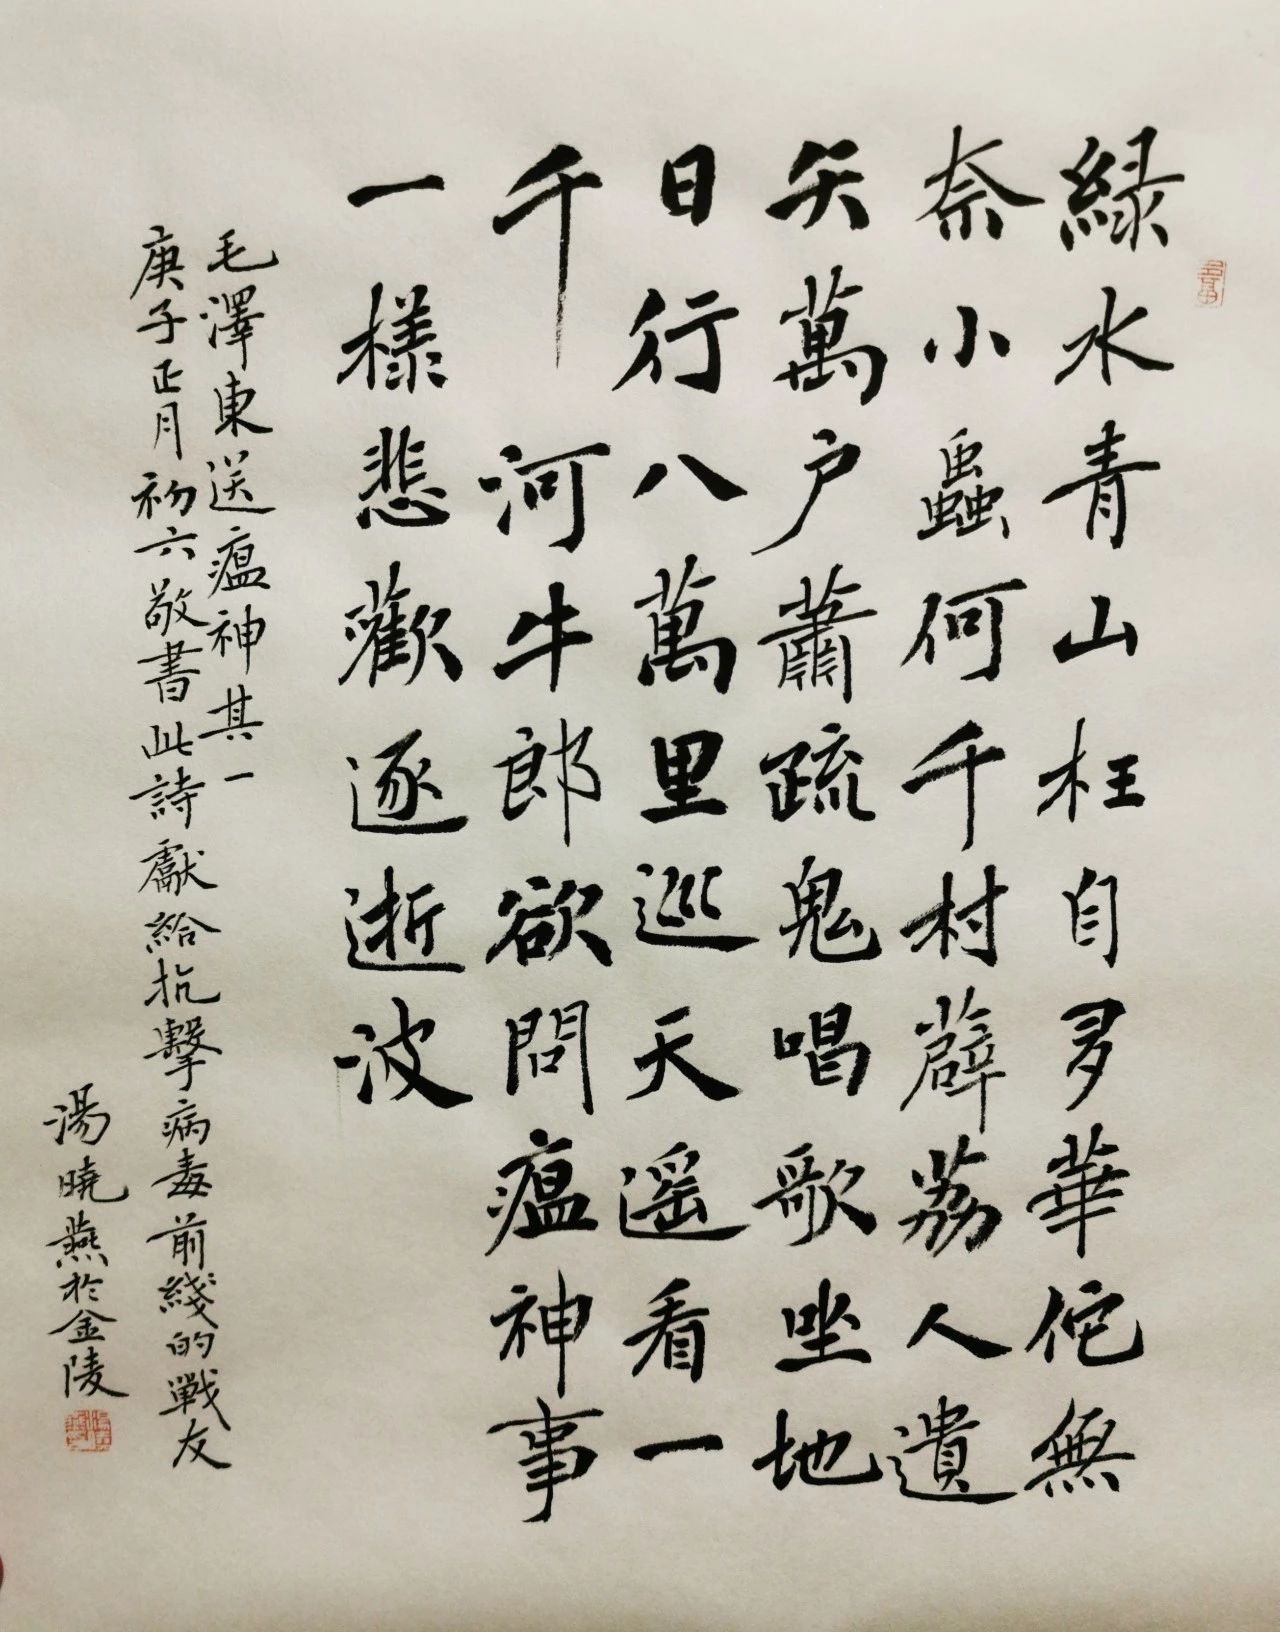 綠水青山枉自多華佗無
奈小蟲何千村薜荔人遺
矢萬户蕭疏鬼唱歌坐地
日行八萬里巡天遥看一
千河牛郎欲問瘟神事
一樣悲歡逐逝波
毛澤東送瘟神其一
庚子正月初六敬書此詩獻給抗擊病毒前綫的戰友
湯曉燕於金陵